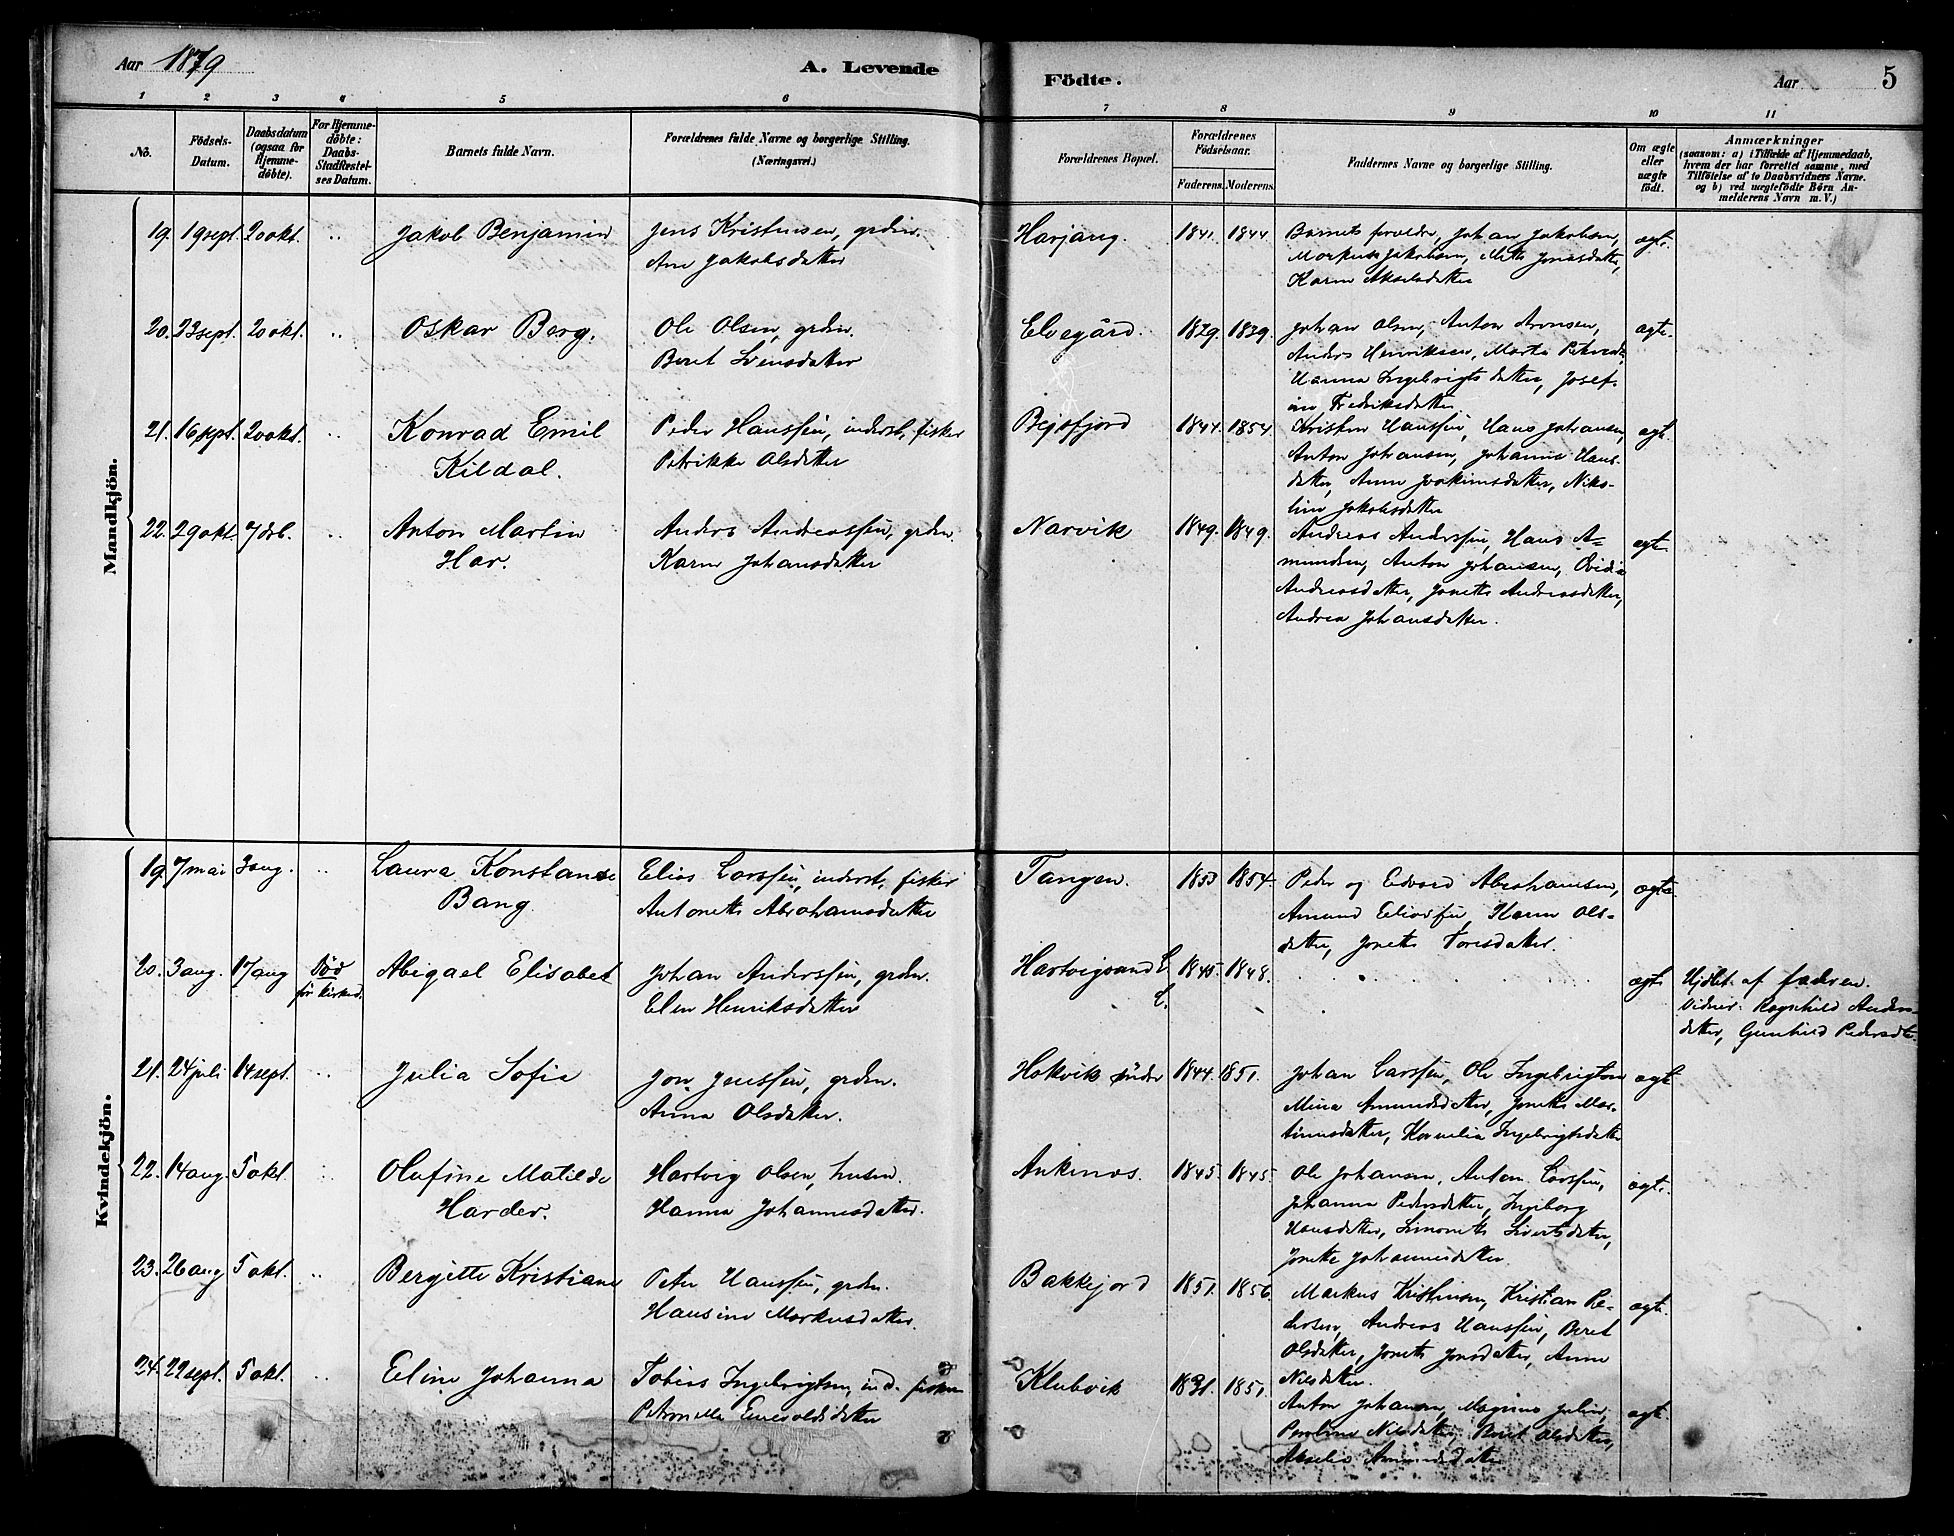 Aar 1879
A. Levende
Födte.
Aar
5
1 2 3 4 5 6 7 8 9 10 11
No.
Födsels-
Datum.
Daabsdatum
(ogsaa for
Hjemme-
döbte).
For Hjemme-
döbte:
Daabs-
Stadfæstel-
ses Datum.
Barnets fulde Navn.
Forældrenes fulde Navne og borgerlige Stilling.
(Næringsvei.)
Forældrenes Bopæl.
Forældrenes
Födselsaar.
Faderens. Moderens.
Faddernes Navne og borgerlige Stilling.
Om ægte
eller
uægte
födt.
Anmærkninger
(saasom: a) i Tilfælde af Hjemmedaab,
hvem der har forrettet samme, med
Tilföielse af to Daabsvidners Navne.
og b) ved uægtefödte Börn An-
melderens Navn m. V.)
Mandkjön.
19. 19 sept. 20 okt. " Jakob Benjamin
Jens Kristensen, grdm.
Ane Jakobsdatter
Harjang. 1841. 1844
Barnets forældre, Johan Jakobsen,
Markus Jakobsen, Mette Jonasdatter,
Karen Akselsdatter
ægte
20. 23 sept. 20 okt. " Oskar Berg.
Ole Olsen, grdm.
Beret Svensdatter
Elvegård. 1829. 1839.
Johan Olsen, Anton Aronsen,
Anders Henriksen, Marta
Hanna Ingebrigtsdatter, Josef-
ine Fredriksdatter
ægte.
21. 16 sept. 20 okt. " Konrad Emil
Kildal.
Peder Hanssen, inderst, fisker
Petrikke Olsdatter
Bejsfjord 1844. 1854.
Kristen Hanssen, Hans Johansen,
Anton Johansen, Johanna Hans-
datter, Anne Joakimsdatter, Niko-
line Jakobsdatter
ægte
22. 29 okt. 7 " Anton Martin
Har.
Anders Andreassen, grdm.
Karen Johansdatter
Narvik 1849. 1849.
Andreas Anderssen, Hans A=
mundsen, Anton Johansen,
Andreasdatter, Jonette Andreasdatter,
Andrea Johansdatter.
ægte
Kvindekjön.
19. 7 mai 3 aug. " Laura Konstanse
Bang
Elias Larssen, inderst, fisker
Antonette Abrahamsdatter
Tangen. 1854.
Peder og Edvard Abrahamsen,
Amund Eliassen, Karen Ols-
datter, Jonette Toresdatter.
ægte
20. 3 aug. 17 aug Död
för kirked.
Abigael Elisabet
Johan Anderssen, grdm.
Elen Henriksdatter
Hartvigsand 1845. 1848.
ægte
Hjdbt. af faderen.
Vidner: Ragnhild Anders-
datter, Gunhild Pedersdtr.
21. 24 juli 14 sept. " Julia Sofie
Jon Jenssen, grdm.
Anna Olsdatter.
Hokvik 1844. 1851.
Johan Larssen, Ole Ingebrigtsen
Mina Amundsdatter, Jonette Mar-
tinusdatter, Kornelia Ingebrigtsdatter
ægte
22. 14 aug. 5 okt " Olufine Matilde
Harder.
Hartvig Olsen, husm.
Hanna Johannesdatter.
Ankenes. 1845. 1845.
Ole Johansen, Anton Larssen,
Johanna Pedersdatter, Ingeborg
Hansdatter, Simonette Sivertsdatter,
Jonette Johannesdatter.
ægte.
23. 26 aug 5 okt. " Bergitte Kristiane
Peter Hanssen, grdm.
Hansine Markusdatter.
Bakkejord 1851. 1856.
Markus Kristensen, Kristian Pe-
dersen, Andreas Hanssen, Beret
Olsdatter, Jonette Jonsdatter, Anne
Nilsdatter.
ægte.
24. 22 sept. 5 okt. " Eline Johanna
Tobias Ingebrigtsen, ind. fisker
Petronella Enevoldsdatter
Klubvik 1851.
Anton Johansen, Magnus
Paroline Nilsdatter, Beret Olsdatter,
Akselia Amundsdatter
ægte.